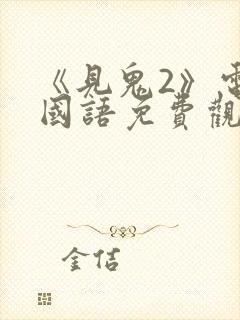 《見鬼2》電
國語免費觀
金佶